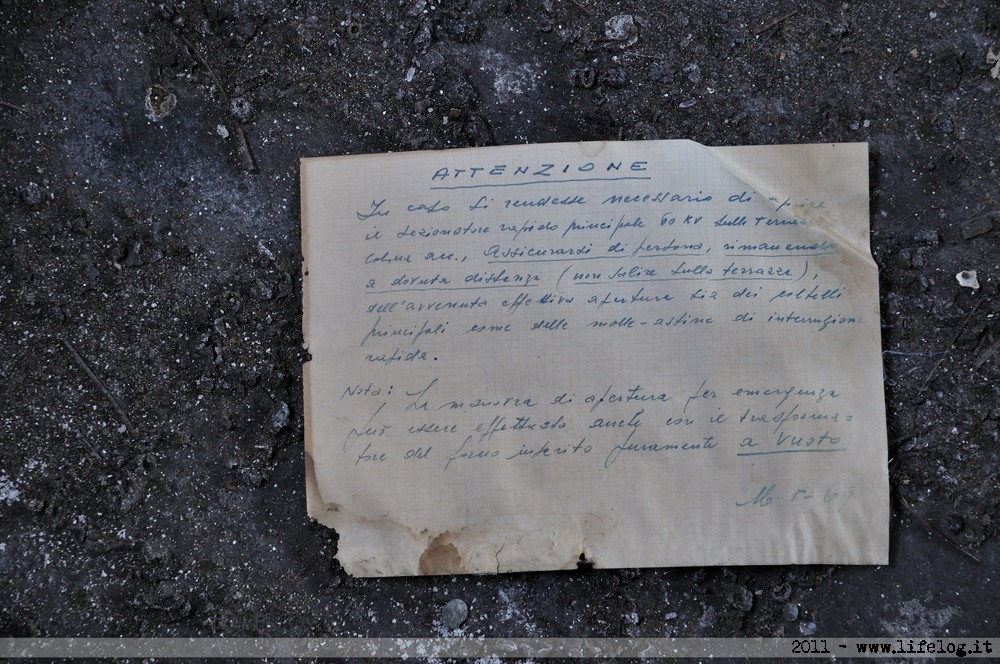 ATTENZIONE
In caso si rendesse necessario di aprire
il sezionatore rapido principale 60 KV sulla terrazza
cabina acc., assicurarsi di persona, rimanendo
a dovuta distanza (non salire sulla terrazza),
dell'avvenuta effettiva apertura sia dei coltelli
principali come delle molle-astine di interruzione
rapida.
Nota: La manovra di apertura per emergenza
può essere effettuata anche con il trasforma=
tore del forno inserito puramente a vuoto
2011 - www.lifelog.it